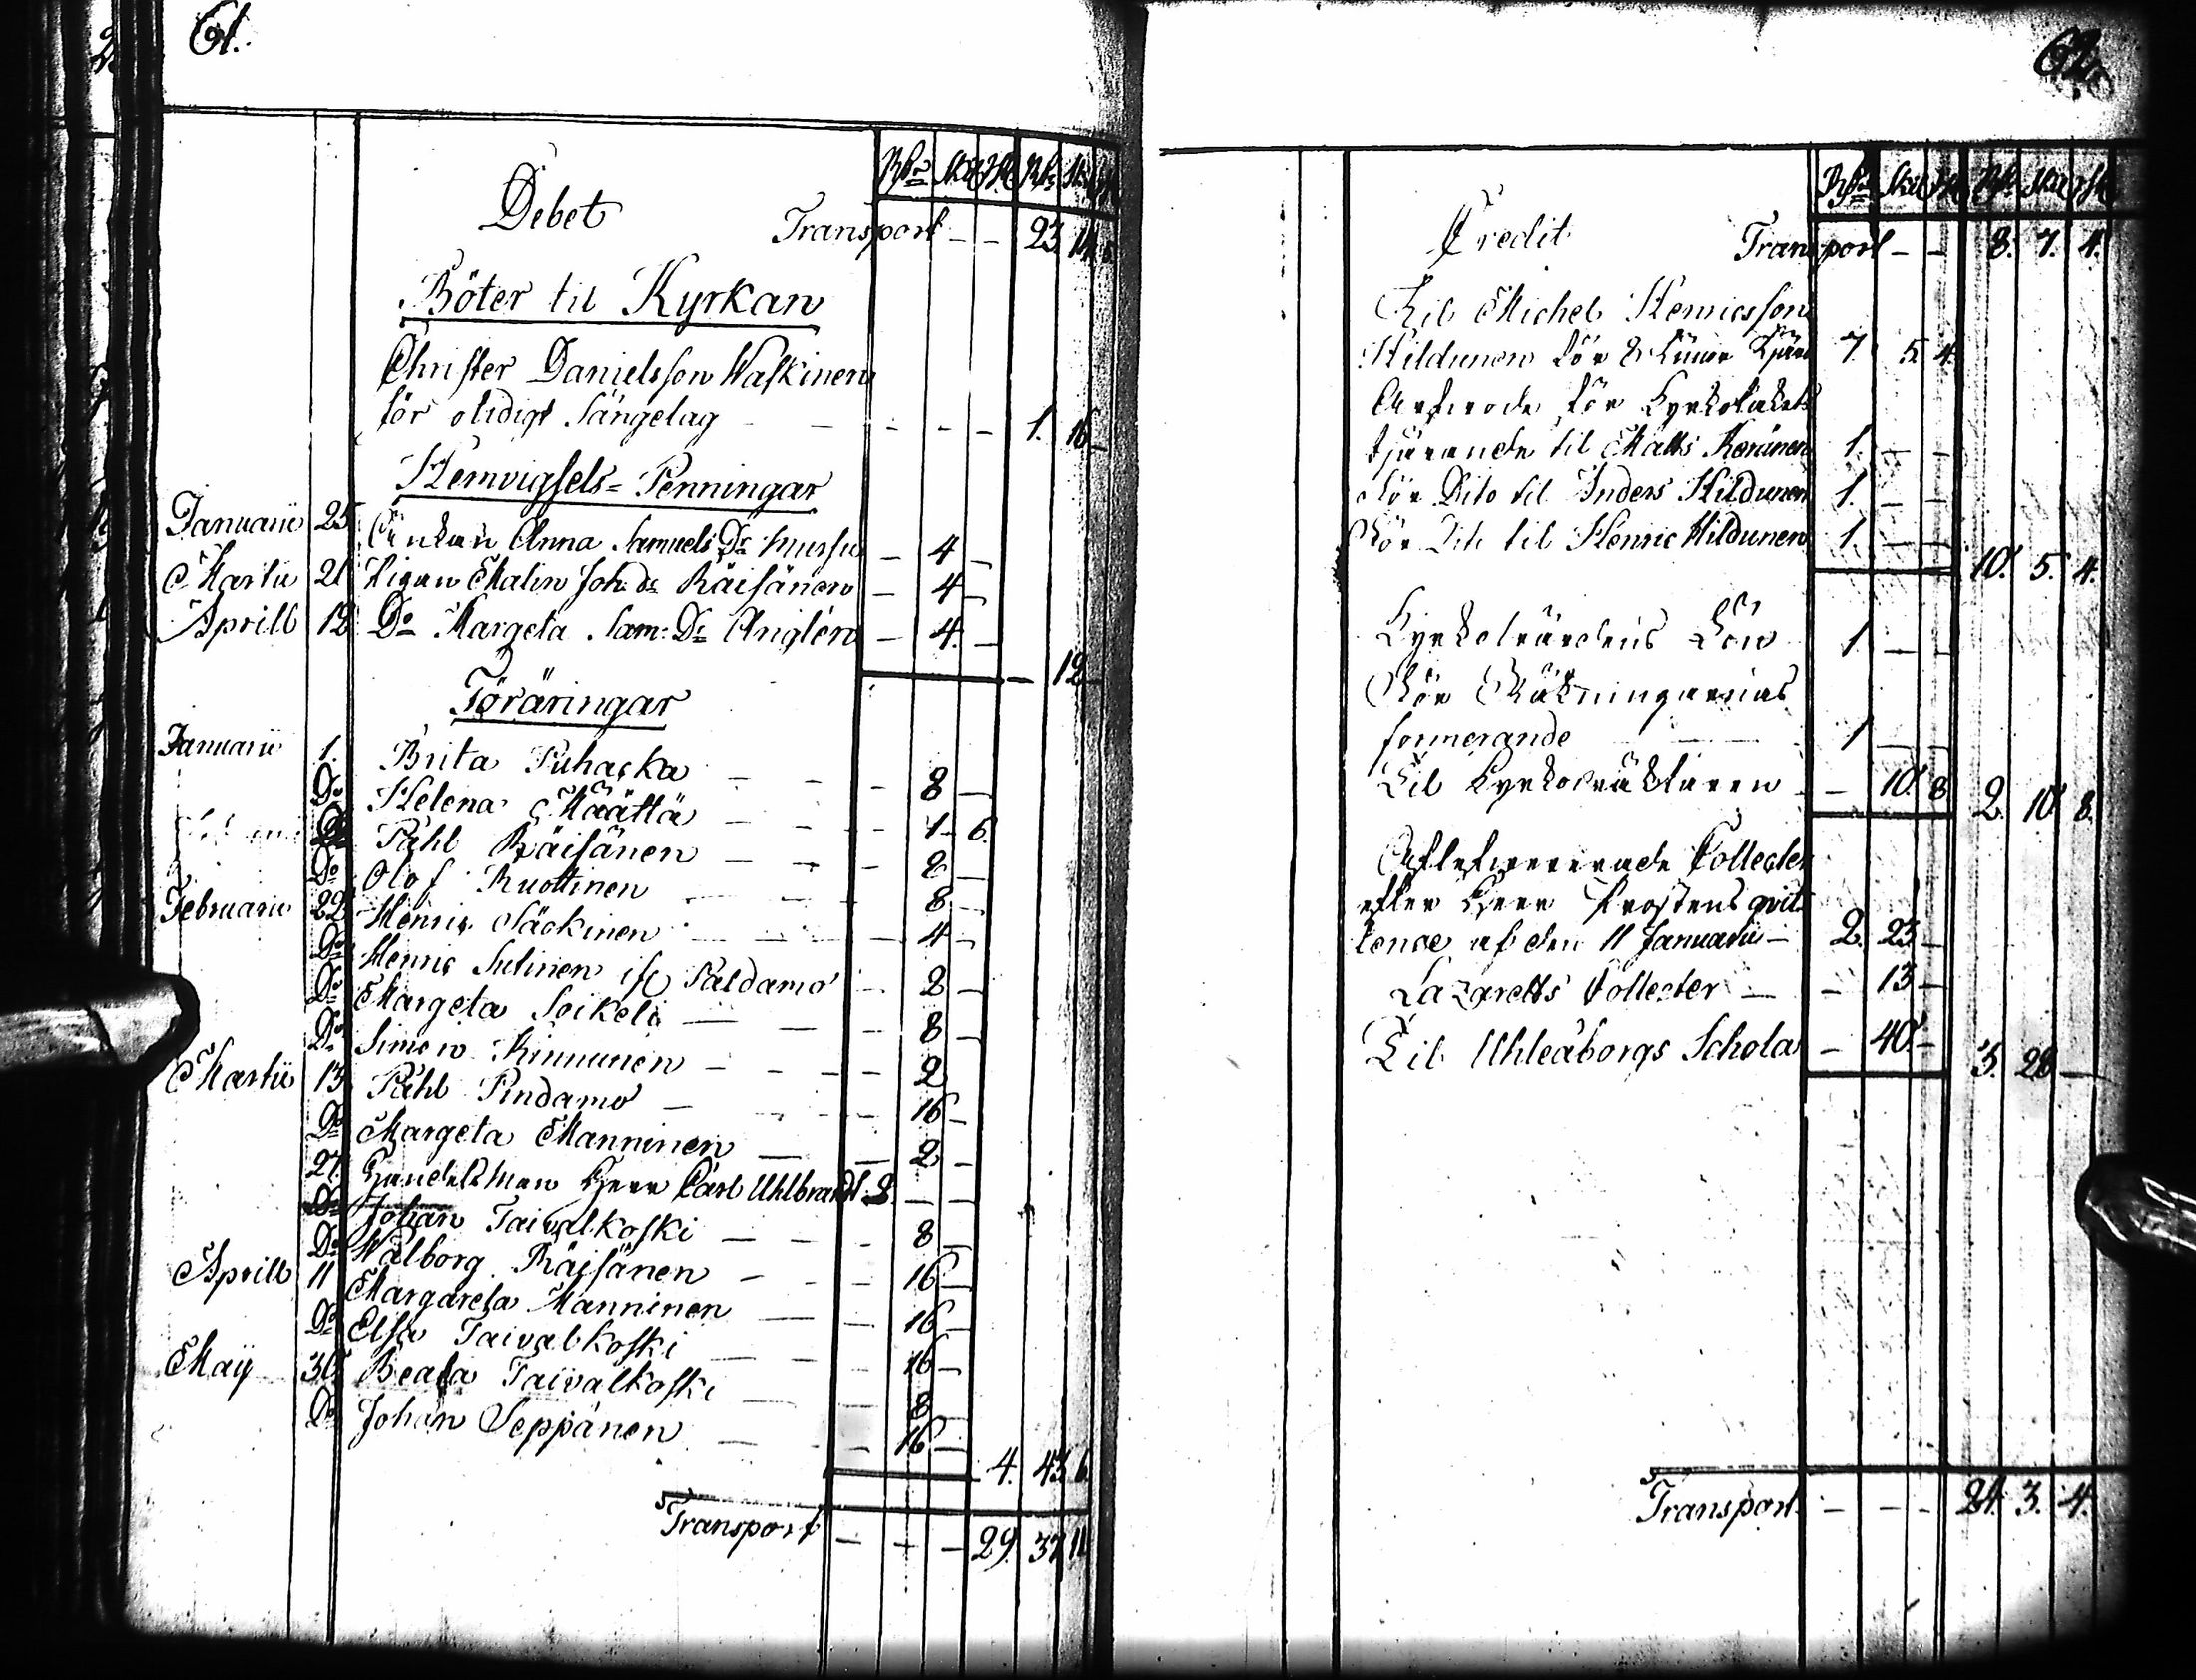 61.
Rd:r Sk: rst Rd:r Sk: rst
Debet Transport - - 23. 14. 5
Böter til Kyrkan
Christer Danielsson Waskinen
för olidigt Sängelag - - - - 1. 16 -
Hemvigsels= Penningar
Januarii 25 Änkan Anna Samuels Dr Mursu - 4 -
Martii 21 Pigan Malin Joh: Dr Räisänen - 4 -
Aprill 12 Do Margeta Sam: Dr Anglén - 4. -
- 12 -
Föräringar
Januarii 1. Brita Puhacka - - - 8 -
Do Helena Määttä - - - 1 6.
Do Påhl Räisänen - - - 2 -
Do Olof Ruottinen - - - 8 -
Februarii 22 Henric Säckinen - - - 4 -
Do Henric Sutinen ifr Paldamo - 2 -
Do Margeta Soikeli - - - 8 -
Do Simon Kinnunen - - - 2
Martii 13 Påhl Pindamo - - - 16 -
Do Margeta Manninen - - 2 -
27. Handelsman Herr Carl Uhlbrandt 2 - -
Do Johan Taivalkoski - - - 8 -
Do Walborg Räisänen - - - 16 -
Aprill 11 Margareta Manninen - - 16 -
Do Elsa Taivalkoski - - - 16 -
Maij 30 Beata Taivalkoski - - - 8 -
Do Johan Seppänen - - - 16 -
4. 43. 6
Transport - - - 29. 37 11
62.
Rd:r Sk: rst Rd:r Sk: rst
Credit Transport - - 8. 7. 4.
Til Michel Henricsson
Hildunen för 8 Tunnor Tjära 7. 5. 4.
Arfwode för Kyrkotakets
tjärande til Matts Keränen 1. - -
För Dito til Anders Hildunen 1. - -
För Dito til Henric Hildunen 1. - -
10. 5. 4.
Kyrkowärdens Lön 1 - -
För Räkningarnas
formerande 1 - -
Til Kyrkowäktaren - 10. 8
2. 10. 8.
Aflefwererade Collecter
efter Herr Prostens qvit-
tence af den 11 Januarii - 2. 23 -
Lazaretts Collecter - - 13 -
Til Uhleåborgs Schola - 40. -
3. 28 -
Transport - - - 24. 3. 4.